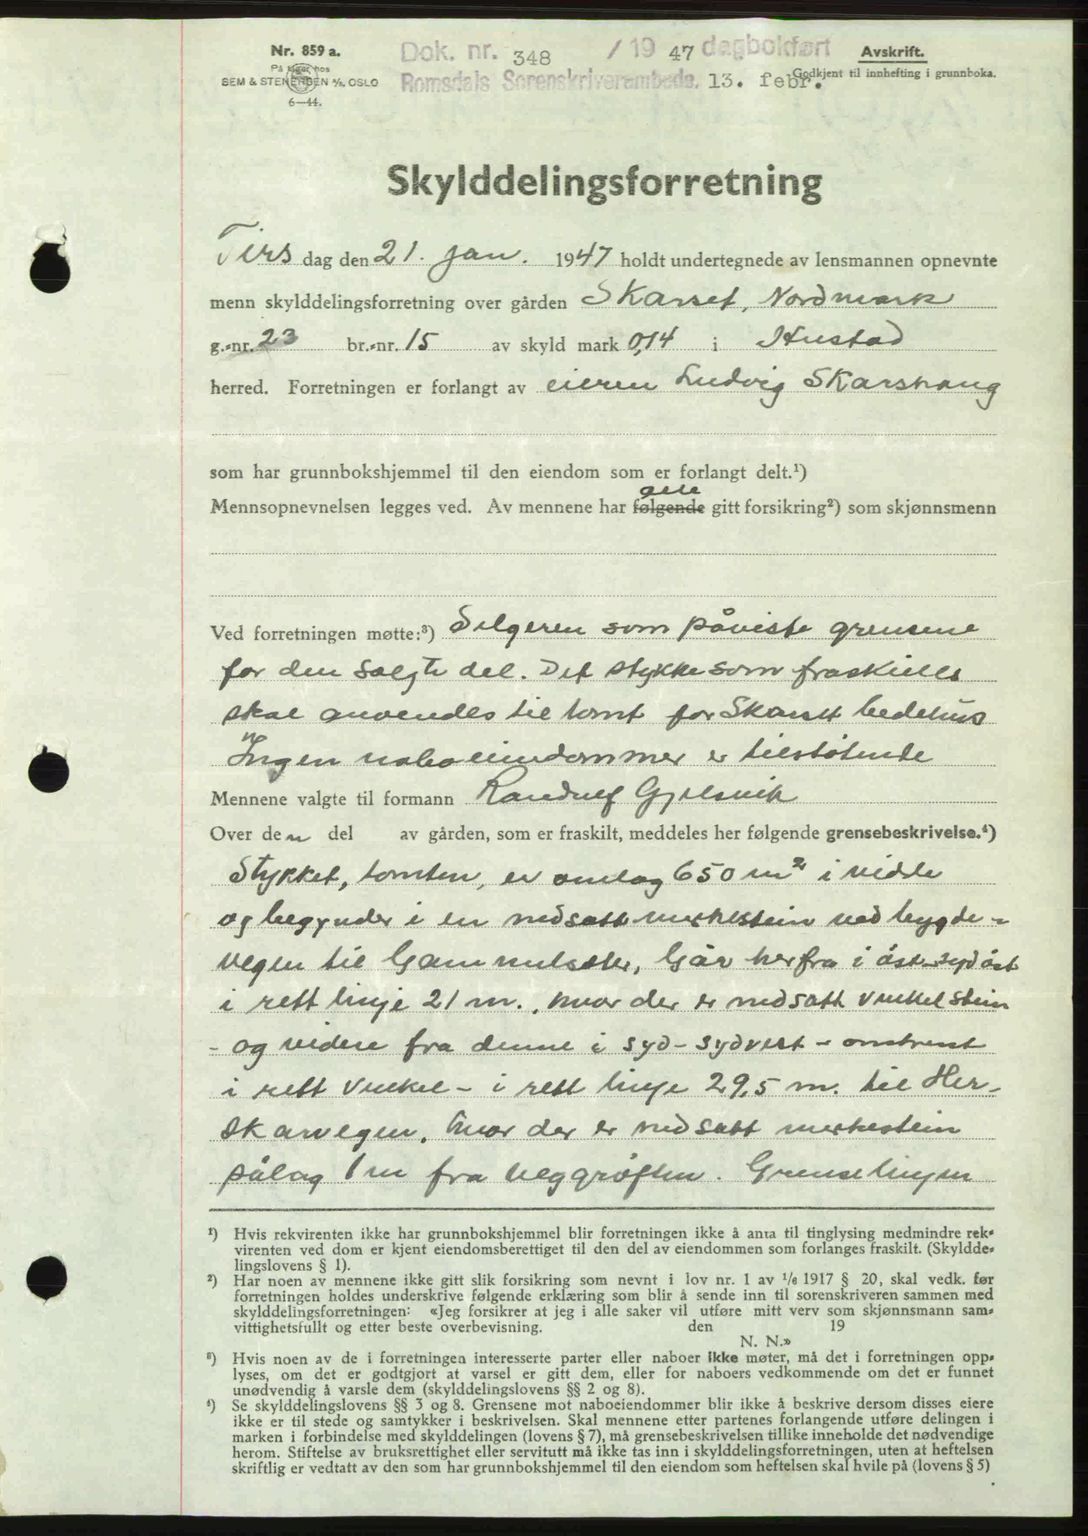 Nr. 859 a.
På lager hos
SEM & STENERSEN A/S. OSLO
6—44.
Dok. nr. 348 / 19 47 dagbokført
Romsdals Sorenskriverembede. 13. febr.
Avskrift.
Godkjent til innhefting i grunnboka.
Skylddelingsforretning
Tirsdag den 21. jan. 1947 holdt undertegnede av lensmannen opnevnte
menn skylddelingsforretning over gården Skarset, Nordmark
g.-nr. 23 br.-nr. 15 av skyld mark 0,14 i Hustad
herred. Forretningen er forlangt av eieren Ludvig Skarshaug
som har grunnbokshjemmel til den eiendom som er forlangt delt.¹)
alle
Mennsopnevnelsen legges ved. Av mennene har følgende gitt forsikring²) som skjønnsmenn
Ved forretningen møtte:³) Selgeren som påviste grensene
for den solgte del. Det stykke som fraskilles
skal anvendes til tomt for Skarset bedehus
Ingen naboeiendommer er tilstøtende
Mennene valgte til formann Randulf Gjelsvik
Over den del av gården, som er fraskilt, meddeles her følgende grensebeskrivelse.⁴)
Stykket, tomten, er omlag 650 m² i vidde
og begynder i en nedsatt merkestein ved bygde-
vegen til Gammelseter, Går herfra i øst-sydøst
i rett linje 21 m., hvor der er nedsatt vinkelstein
- og videre fra denne i syd-sydvest - omtrent
i rett vinkel - i rett linje 29,5 m. til Her-
skarvegen, hvor der er nedsatt merkestein
pålag 1 m fra veggrøften. Grenselinjen
¹) Hvis rekvirenten ikke har grunnbokshjemmel blir forretningen ikke å anta til tinglysing medmindre rek-
virenten ved dom er kjent eiendomsberettiget til den del av eiendommen som forlanges fraskilt. (Skyldde-
lingslovens § 1).
²) Har noen av mennene ikke gitt slik forsikring som nevnt i lov nr. 1 av 1/6 1917 § 20, skal vedk. før
forretningen holdes underskrive følgende erklæring som blir å sende inn til sorenskriveren sammen med
skylddelingsforretningen: «Jeg forsikrer at jeg i alle saker vil utføre mitt verv som skjønnsmann sam-
vittighetsfullt og etter beste overbevisning. den 19
N. N.»
³) Hvis noen av de i forretningen interesserte parter eller naboer ikke møter, må det i forretningen opp-
lyses, om det er godtgjort at varsel er gitt dem, eller for naboers vedkommende om det er funnet
unødvendig å varsle dem (skylddelingslovens §§ 2 og 8).
⁴) Se skylddelingslovens §§ 3 og 8. Grensene mot naboeiendommer blir ikke å beskrive dersom disses eiere
ikke er til stede og samtykker i beskrivelsen. Skal mennene etter partenes forlangende utføre delingen i
marken i forbindelse med skylddelingen (lovens § 7), må grensebeskrivelsen tillike inneholde det nødvendige
herom. Stiftelse av bruksrettighet eller servitutt må ikke tas inn i skylddelingsforretningen, uten at heftelsen
skriftlig er vedtatt av den som har grunnbokshjemmel til den eiendom som heftelsen skal hvile på (lovens § 5)